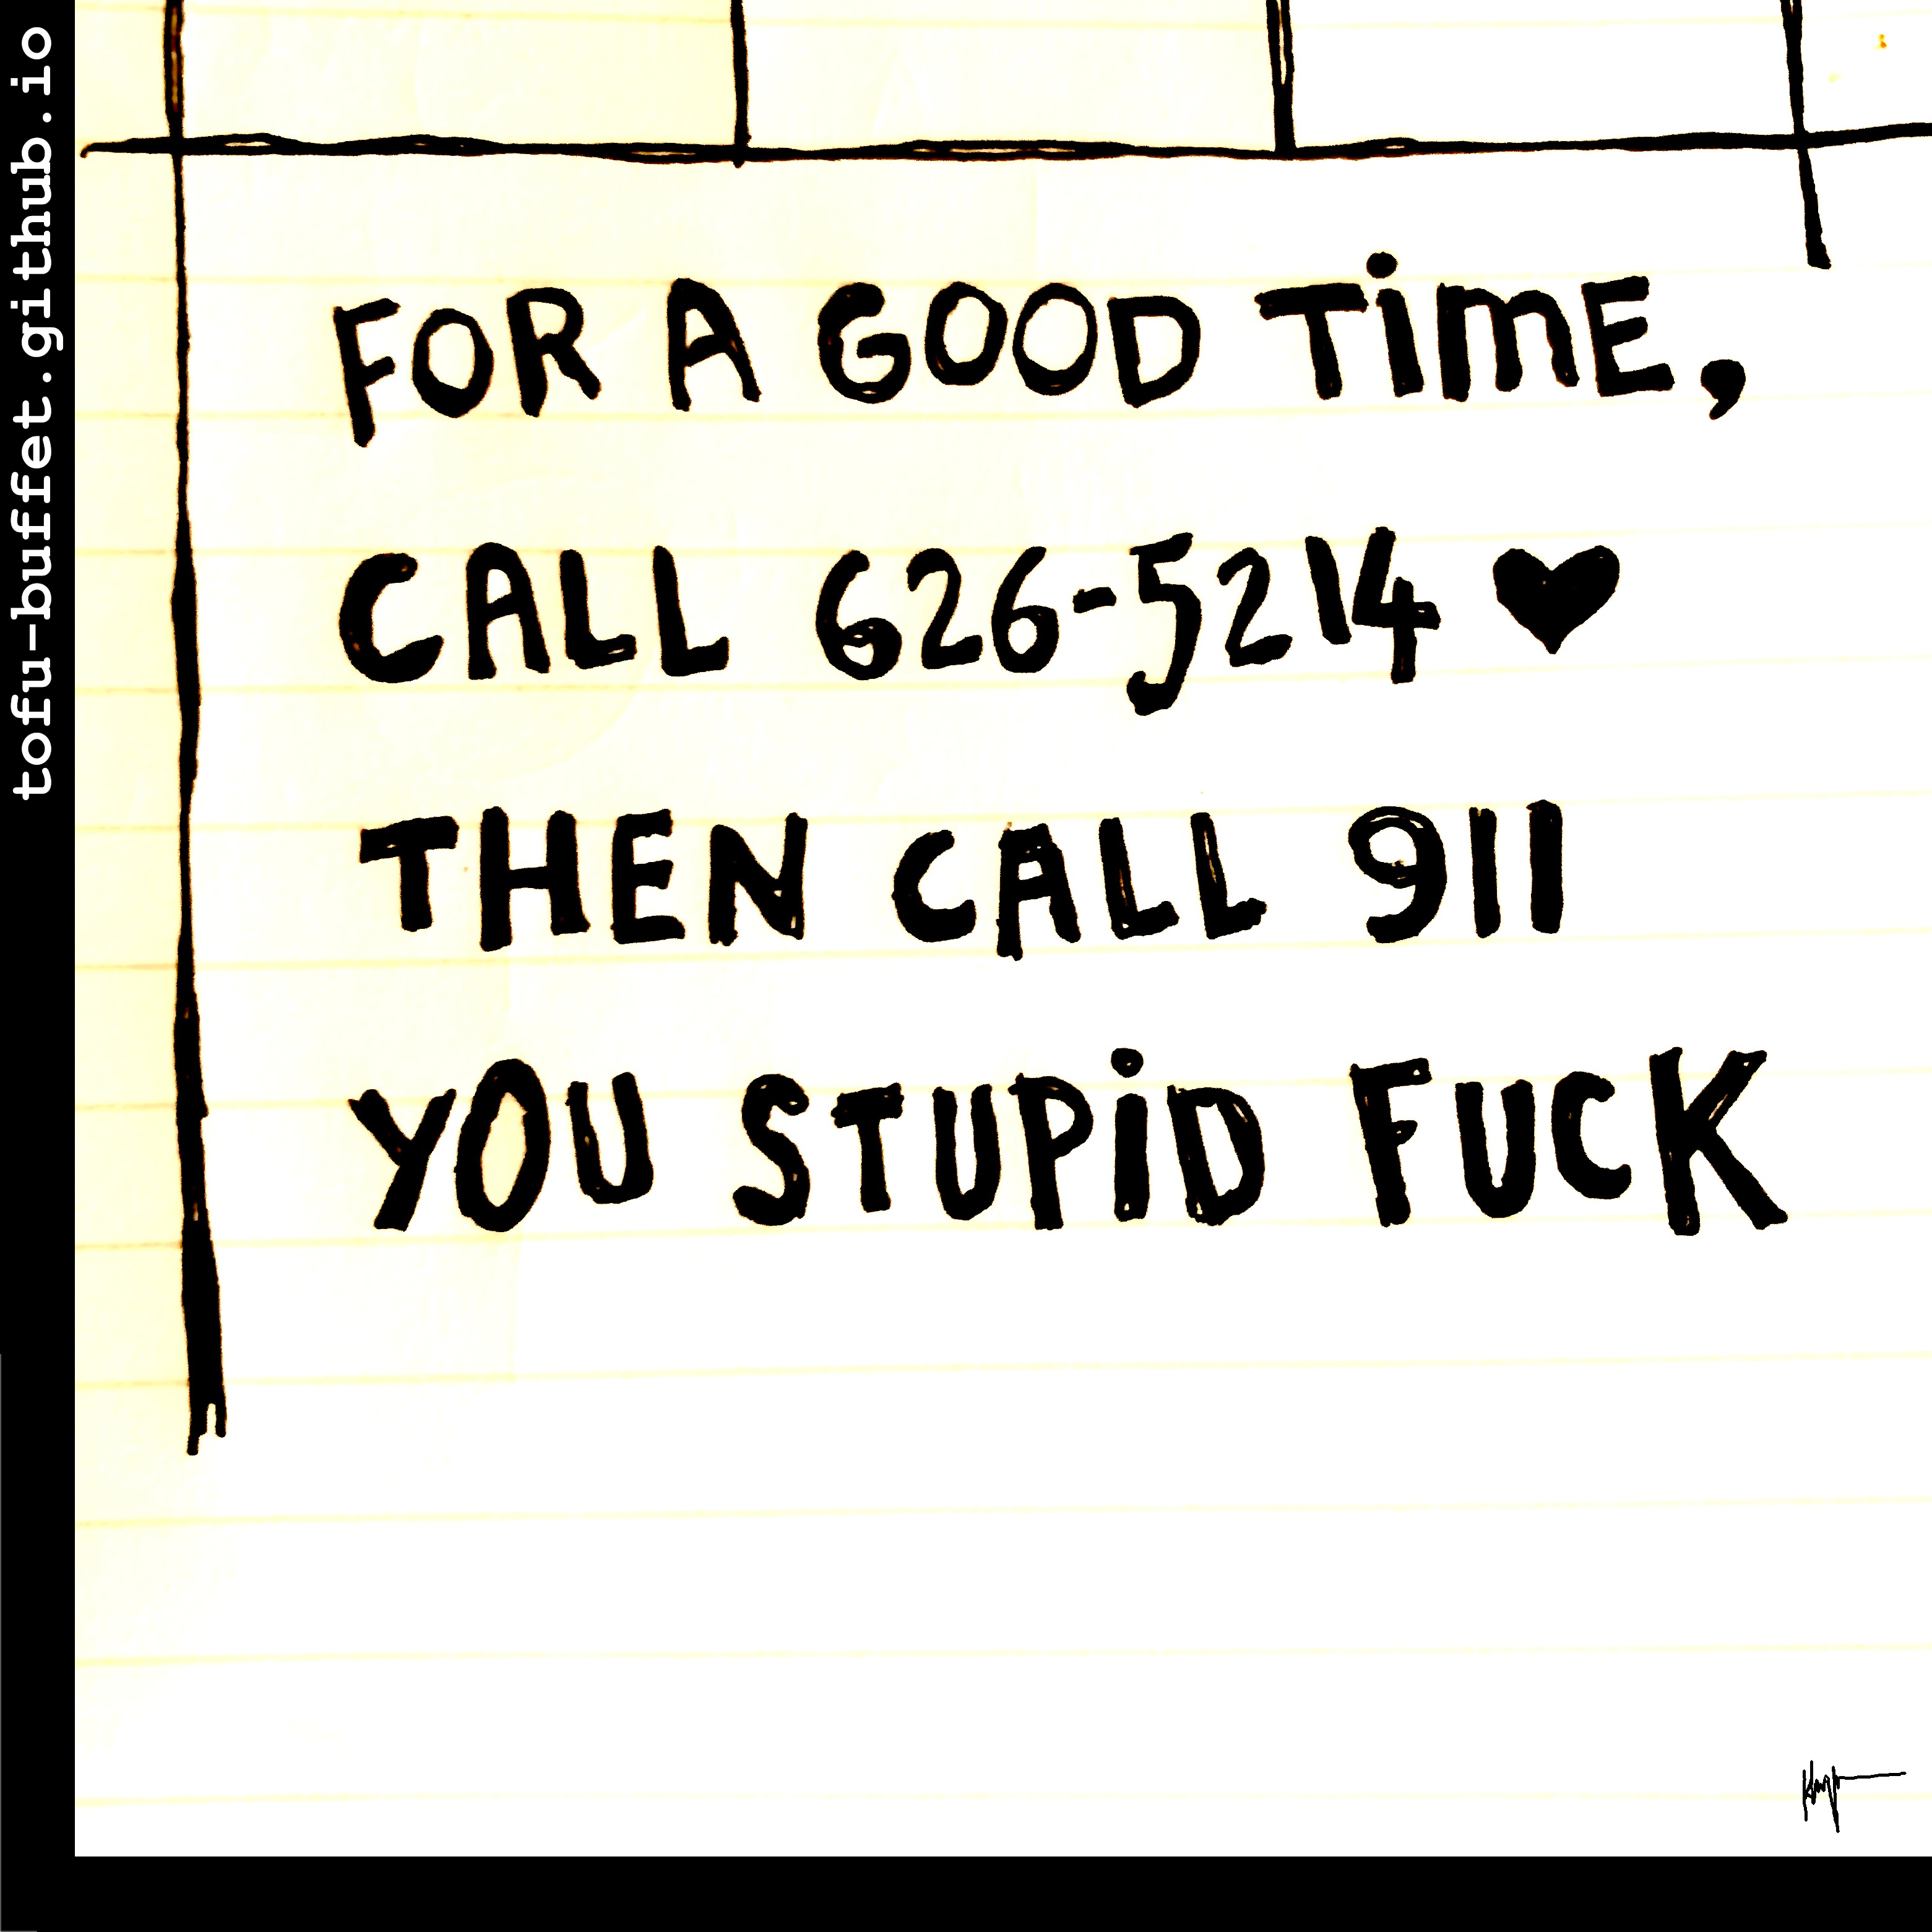 tofu-buffet.github.io
FOR A GOOD TiME,
CALL 626-5214 ♥
THEN CALL 911
YOU STUPiD FUCK